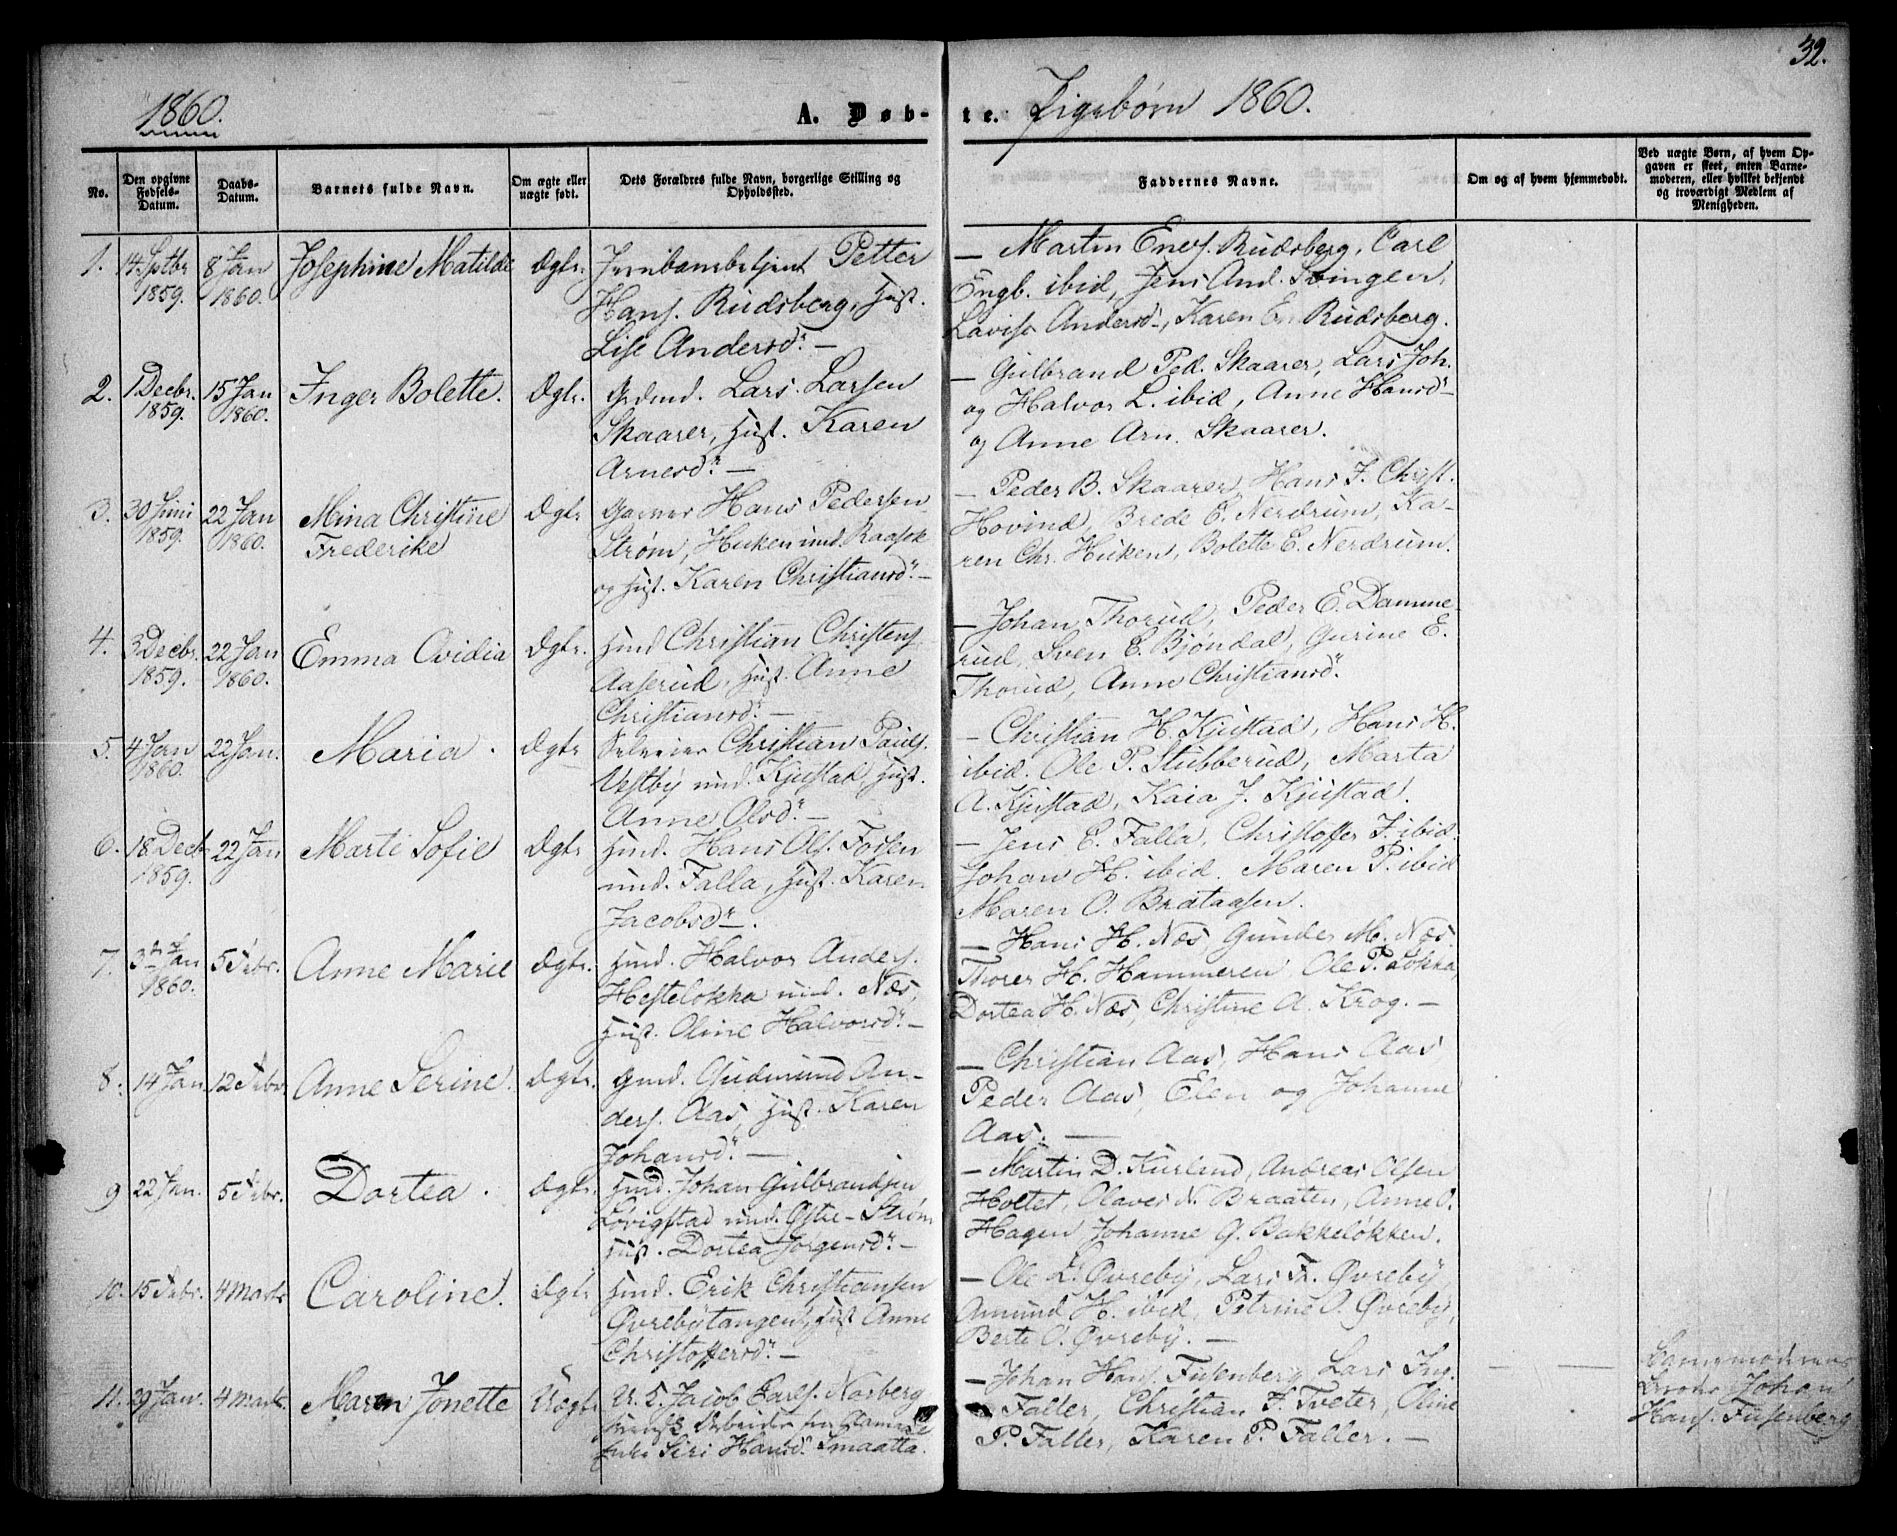 32.
1860.
A. Døbte. Pigebørn 1860.
No.
Den opgivne Fødsels-Datum.
Daabs-Datum.
Barnets fulde Navn.
Om ægte eller uægte født.
Dets Forældres fulde Navn, borgerlige Stilling og Opholdssted.
Faddernes Navne.
Om og af hvem hjemmedøbt.
Ved uægte Børn, af hvem Opgaven er skeet, enten Barnemoderen, eller hvilket bekjendt og troværdigt Medlem af Menigheden.
1. 14 Sptbr 1859. 8 Jan 1860. Josephine Matilde Ægte. Jernbanebetjent Petter
Hans. Rudsberg, Hust.
Lise Andersd. —
— Martin Enes. Rudsberg, Carl
Engb. ibid, Jens And. Svingen,
Lovise Andersd., Karen E. Rudsberg.
2. 1 Decbr. 1859. 15 Jan 1860. Inger Bolette. Ægte. Grdmd. Lars Larsen
Skaarer, Hust. Karen
Arnesd. —
— Gulbrand Ped. Skaarer, Lars Joh.
og Halvor L. ibid, Anne Hansd
og Anne Arn. Skaarer.
3. 30 Juni 1859. 22 Jan 1860. Mina Christine Frederike Ægte Garver Hans Pedersen
Strøm, Huken und. Raasok
og Hust. Karen Christiansd. —
— Peder B. Skaarer, Hans J. Christ.
Hovind, Brede E. Nerdrum, Ka-
ren Chr. Huken, Bolette E. Nerdrum.
4. 3 Decbr. 1859. 22 Jan 1860. Emma Ovidia Ægte. Husd Christian Christens.
Aaserud, Hust. Anne
Christiansd. —
— Johan Thorud, Peder E. Damme-
rud, Sven E. Bjøndal, Gurine E.
Thorud, Anne Christiansd.
5. 4 Jan 1860. 22 Jan. Maria. Ægte Selveier Christian Pauls.
Vestby und. Kjustad, Hust.
Anne Olsd. —
— Christian H. Kjustad, Hans H.
ibid. Ole P. Stubberud, Marta
A. Kjustad, Kaia J. Kjustad.
6. 18 Decbr 1859. 22 Jan Marte Sofie Ægte Husd. Hans Ols. Fossen
und. Falla, Hust. Karen
Jacobsd —.
— Jens E. Falla, Christoffer J. ibid.
Johan H. ibid. Maren P. ibid
Maren O. Brataasen.
7. 3 Jan 1860. 5 Febr. Anne Marie Ægte. Husd. Halvor Anders.
Hesteløkka und. Næs,
Hust. Oline Halvorsd. —
— Hans H. Næs, Gunder M. Næs.
Thorer H. Hammeren, Ole P. Løkka,
Dortea H. Næs, Christine A. Krog. —
8. 14 Jan. 12 Febr. Anne Serine. Ægte. Grd. Gudmund An-
ders. Aas, Hust. Karen
Johansd. —
— Christian Aas, Hans Aas
Peder Aas, Elen og Johanne
Aas. —
9 22 Jan. 5 Febr. Dortea. Ægte. Husd. Johan Gulbrandsen
Lovigstad und. Østre-Strøm
Hust. Dortea Jørgensd. —
— Martin D. Kurlund, Andreas Olsen
Holtet, Olaves N. Braaten, Anne O.
Hagen Johanne G. Bakkeløkken.
10. 15 Febr. 4 Marts Caroline. Ægte Husd. Erik Christiansen
Øvrebytangen, Hust Anne
Christoffersd. —
— Ole L. Øvreby, Lars Fr. Øvreby
Amund H. ibid, Petrine O. Øvreby,
Berte O. Øvreby. —
11. 29 Jan. 4 Marts Maren Jonette Uægte U. K. Jacob Carls. Norberg
svensk Arbeider
Siri Hansd. Smaatta.
— Johan Hans. Fusenberg Lars Ing.
Faller, Christian F. Tveter, Oline
P. Faller, Karen P. Faller. —
Barnemoderens
Broder Johan
Hans. Fusenberg